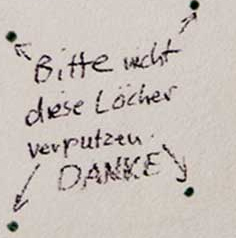 Bitte nicht
diese Löcher
verputzen.
DANKE